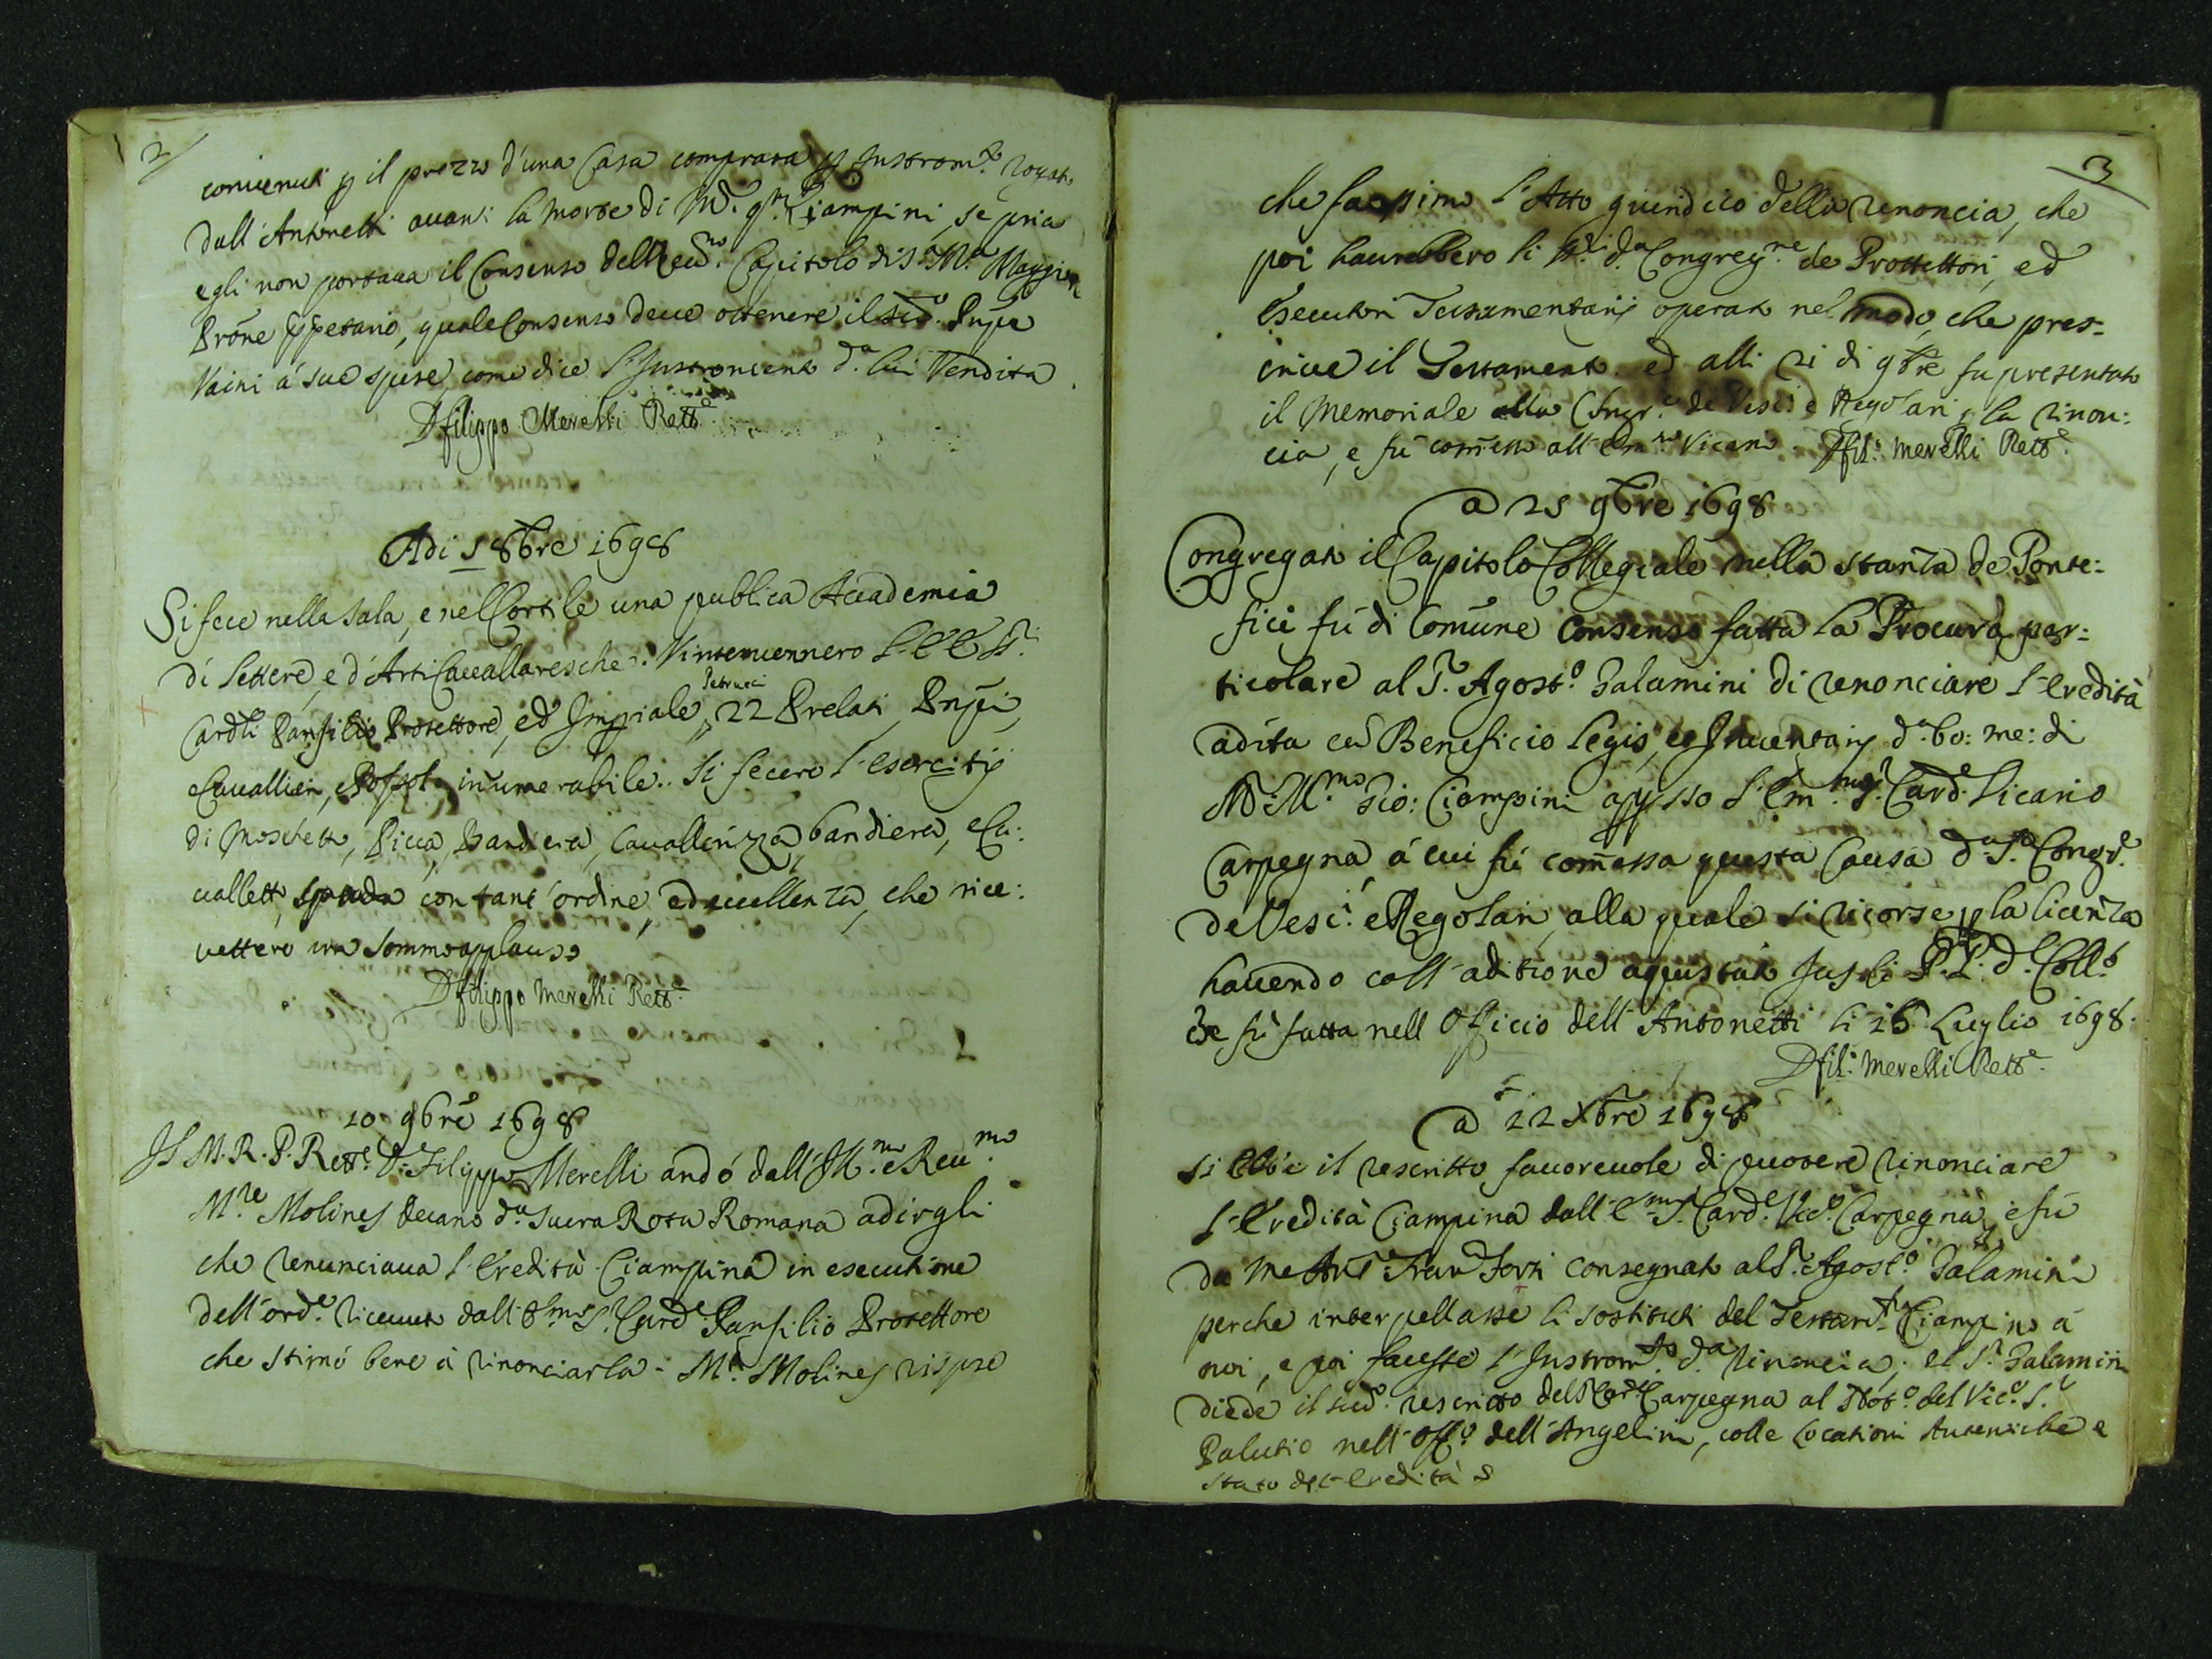 2
convenuti p il prezzo d'una Casa comprata p Instrom.to rogato
dall'Antonetti avanti la morte di M.r qm Ciampini, se pria
egli non portava il Consenso del Reu.mo Capitolo di S. M.a Maggiore
Prone, quale Consenso deve ottenere il sud.o Pnpe
Vaini á sue spese, come dice l'Instromento d.a lui Vendita.
D filippo Merelli Rett.e
Adi 5 8bre 1698
Si fece nella Sala, e nel Cortile una publica Accademia
di lettere, e d'Arti Cavallaresche. V'intervennero l'EE SS.ri
Card.li Panfilio Protettore, ed Imperiale, Petrucci 22 Prelati, Pnpi,
e Cavallieri, e Popolo innumerabile. Si fecero l'esercitij
di Moschetto, Picca, Bandiera, Cavallerizza, bandiera, e Ca:
valletto, spada con tant'ordine, ed eccellenza, che rice:
vettero un sommo applauso
D filippo Merelli Rett.e
10 9bre 1698
Il M.R.P. Rett.e D. Filippo Merelli andó dall'Ill.mo e Reu.mo
M.re Molines Decano d.a Sacra Rota Romana a dirgli
che renunciava l'Eredità Ciampina in esecutione
dell'ord.e ricevuto dall'Em.o S.r Card.e Panfilio Protettore
che stimó bene á rinonciarla. M.r Molines rispose
3
che facessimo l'Atto giuridico della renoncia, che
poi haurebbero li SS.ri d.a Congreg.ne de Prottettori, ed
Esecutori Testamentarij operato nel modo, che pres=
crive il Testamento. ed alli 21 di 9bre fu presentato
il Memoriale alla Congr.e de Vesc.i e Regolari p la rinon:
cia, e fú comesso all'Em.mo Vicario D fil.o Merelli Rett.e
a 25 9bre 1698
Congregato il Capitolo Collegiale nella stanza de Ponte:
fici fú di Comune Consenso fatta la Procura par:
ticolare al S.r Agost.o Palamini di renonciare l'Eredità
adíta cu Beneficio legis, et Inventarij d.a bo: me: di
M. Gio: Ciampini appresso l'Em.mo S.r Card.e Vicario
Carpegna, á cui fú comessa questa Causa d.a S.a Cong.e
de Vesc.i e Regolari, alla quale si ricorse p la licenza
havendo coll'aditione acquistato Jus li P.P. d.l Coll.o
che fú fatta nell'Officio dell'Antonetti li 16 Luglio 1698.
D fil.o Merelli Rett.e
a 22 Xbre 1698
Si ebbe il rescritto favorevole di potere rinonciare
l'Eredità Ciampina dall'E.mo S. Card.e Vic.o Carpegna, e fú
da me consegnato al S.r Agost.o Palamini
perche interpellasse li sostituti del Ciampino á
noi, e poi facesse l'Instrom.to d.a rinoncia, el S.r Palamini
diede il sud.o rescritto del S. Card.e Carpegna al Not.o del Vic.o S.r
Palutio nell'Off.o dell'Angelini, colle locationi Autentiche e
stato dell'Eredità